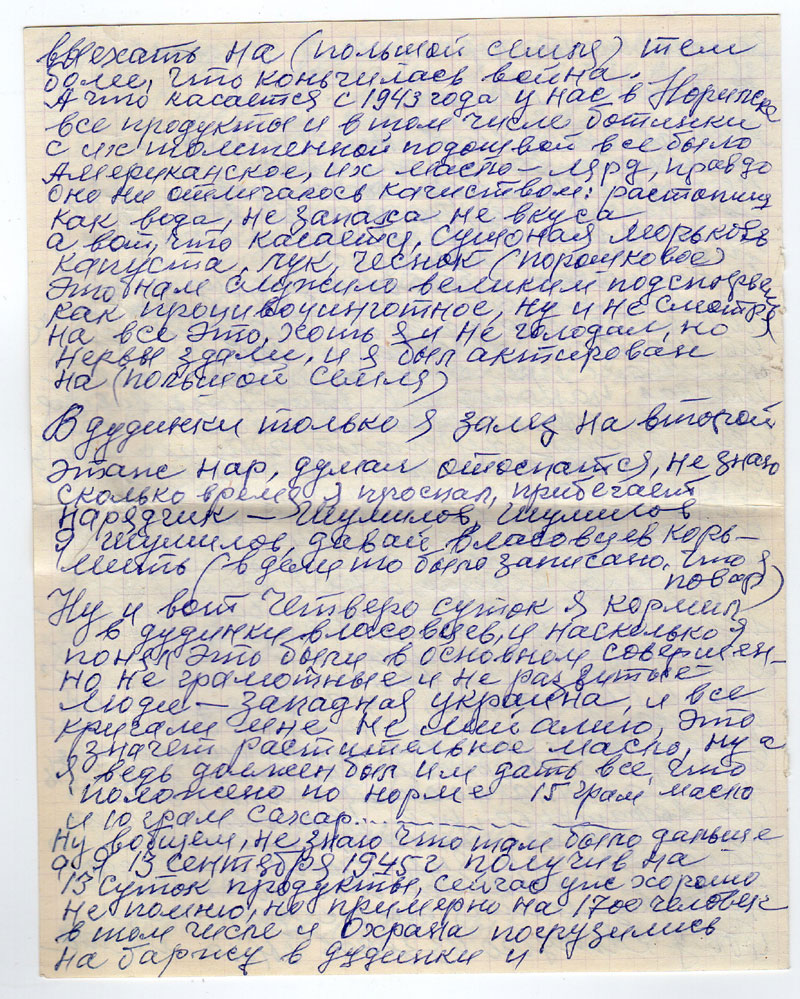 выехать на (польшой семля) тем
боле, что коньчилась война.
А что касается с 1943 года у нас в Норильске
все продукты и в том числе ботинки
с их толщенной подошвой все было
Американское, их масло – лярд, правдо
оно ни отличалось качиством: растопиш
как вода, не запаха не вкуса
а вот, что касается, сушоная морьковь
капуста, лук, чеснок (порошковое)
Это нам служило великим подспорьем
как процивоцинготное, ну и не смотря
на все это, хоть я и не голодал, но
нервы здали, и я был актирован
на (польшой семля)
В дудинки только я залез на второй
этаж нар, думал отоспатся, не знаю
сколько время я проспал, прибегает
нарядчик – Шумилов, Шумилов
я Шумилов, давай власовцев корь-
мить (в деле то было записано, что я
повар)
Ну и вот четверо суток я кормил
в дудинки власовцев, и насколько я
понял это были в основном совершен-
но не грамотные и не развутые
люди – западная украина, и все
кричали мне, не мий алию, это
значет растительное масло, ну а
я ведь должен был им дать все, что
положено по норме 15 грам масло
и 10 грам сахар...
Ну вобщем, не знаю что там было дальше
а я 13 сентября 1945 г получив на
13 суток продукты, сейчас уж хорошо
не помню, но примерно на 1700 человек
в том числе и охрана погрузились
на баржу в дудинки и